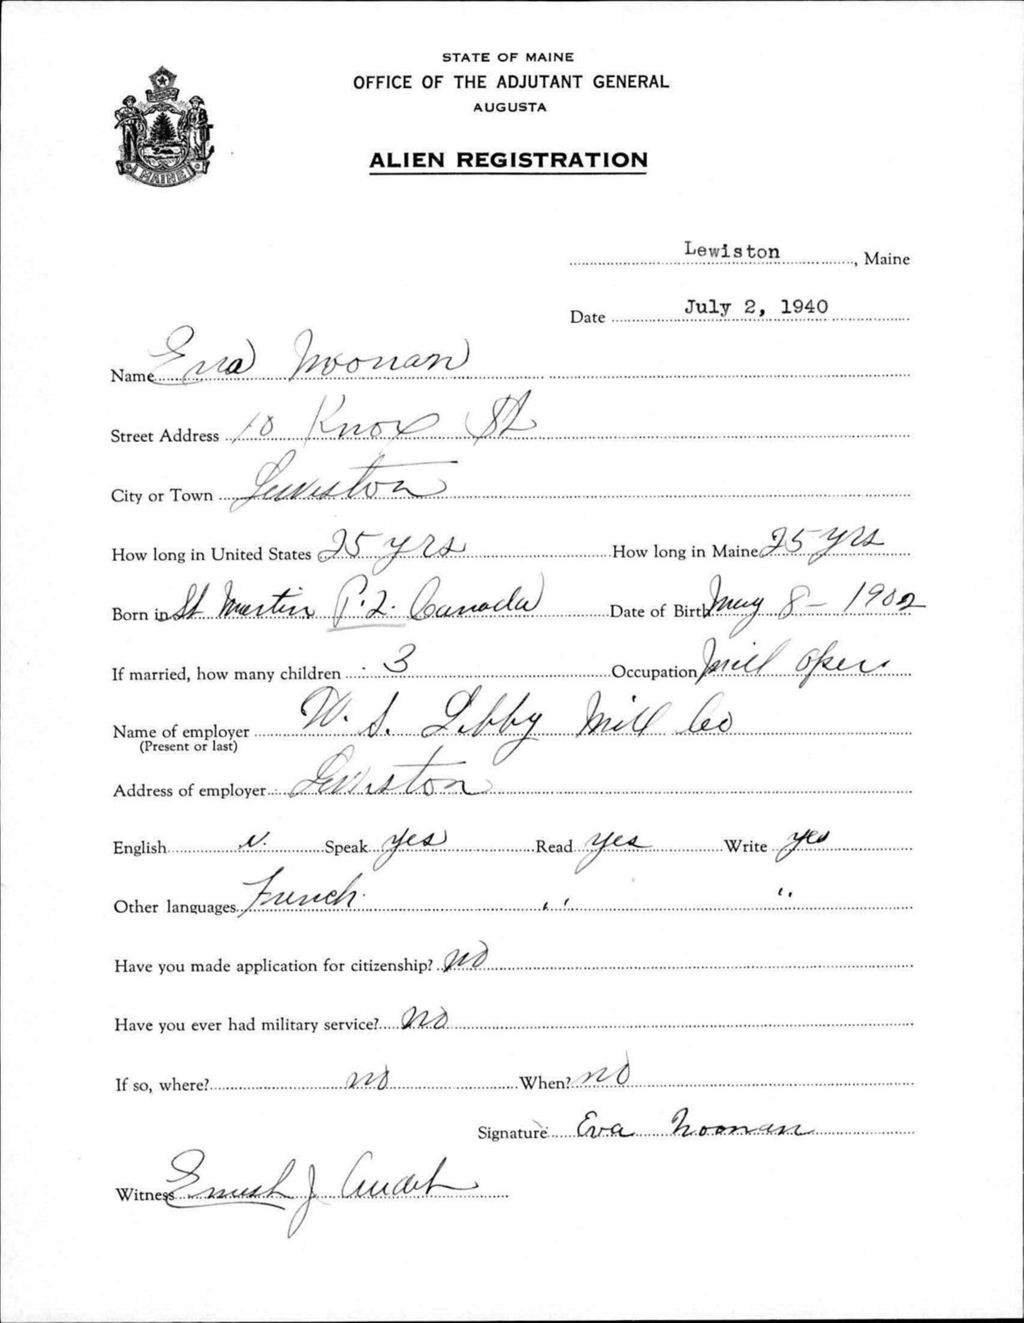 STATE OF MAINE
OFFICE OF THE ADJUTANT GENERAL
AUGUSTA
MAINE
ALIEN REGISTRATION
Lewiston, Maine
Date July 2, 1940
Name Eva Noonan
Street Address 10 Knox St
City or Town Lewiston
How long in United States 25 yrs How long in Maine 25 yrs
Born in St Martin P.Q. Canada Date of Birth May 8 - 1902
If married, how many children 3 Occupation Mill Oper
Name of employer W. S. Libby Mill Co
(Present or last)
Address of employer Lewiston
English Speak yes Read yes Write yes
Other languages French " "
Have you made application for citizenship? no
Have you ever had military service? no
If so, where? no When? no
Signature Eva Noonan
Witness J Audet